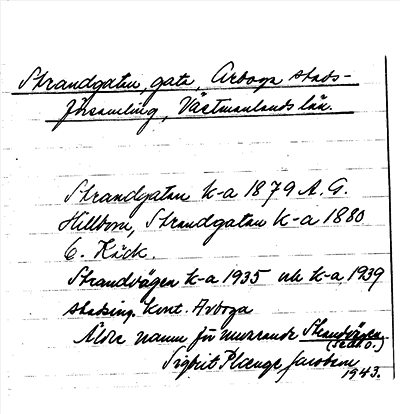 Strandgatan, gata, Arboga stads-
församling, Västmanlands län.
Strandgatan k-a 1879 A. G.
Hillbom, Strandgatan k-a 1880
C. Käck.
Strandvägen k-a 1935 och k-a 1939
stadsing. kont. Arboga
Äldre namn för nuvarande Strandvägen
(se d. o.)
Sigbrit Plænge Jacobson
1943.